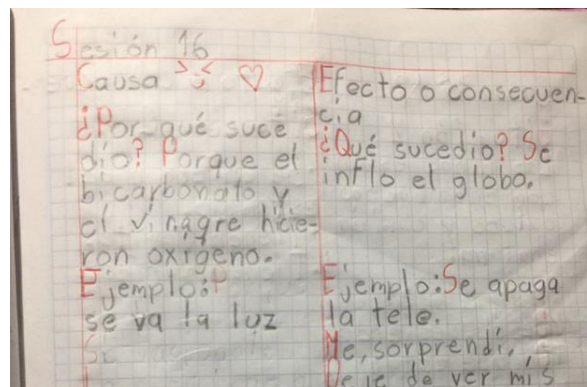 Sesión 16
Causa
¿Por qué suce
dio? Porque el
bicarbonato y
el vinagre hicie-
ron oxigeno.
Ejemplo:
se va la luz
Efecto o consecuen-
cia
¿Qué sucedio? Se
inflo el globo.
Ejemplo: Se apaga
la tele.
Me, sorprendi,
Deje de ver mis